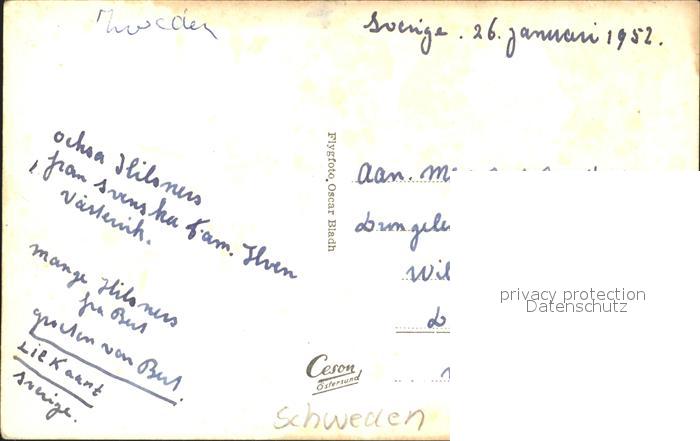 Zweden
Sverige. 26. januari 1952.
ochsa Hilsners
från svenska fam. Ilven
Västervik.
mange Hilsners
fra Bert
groeten van Bert.
Zie Kaart
Sverige.
Flygfoto, Oscar Bladh
Aan.
Wil
Ceson
Östersund
Schweden
privacy protection
Datenschutz